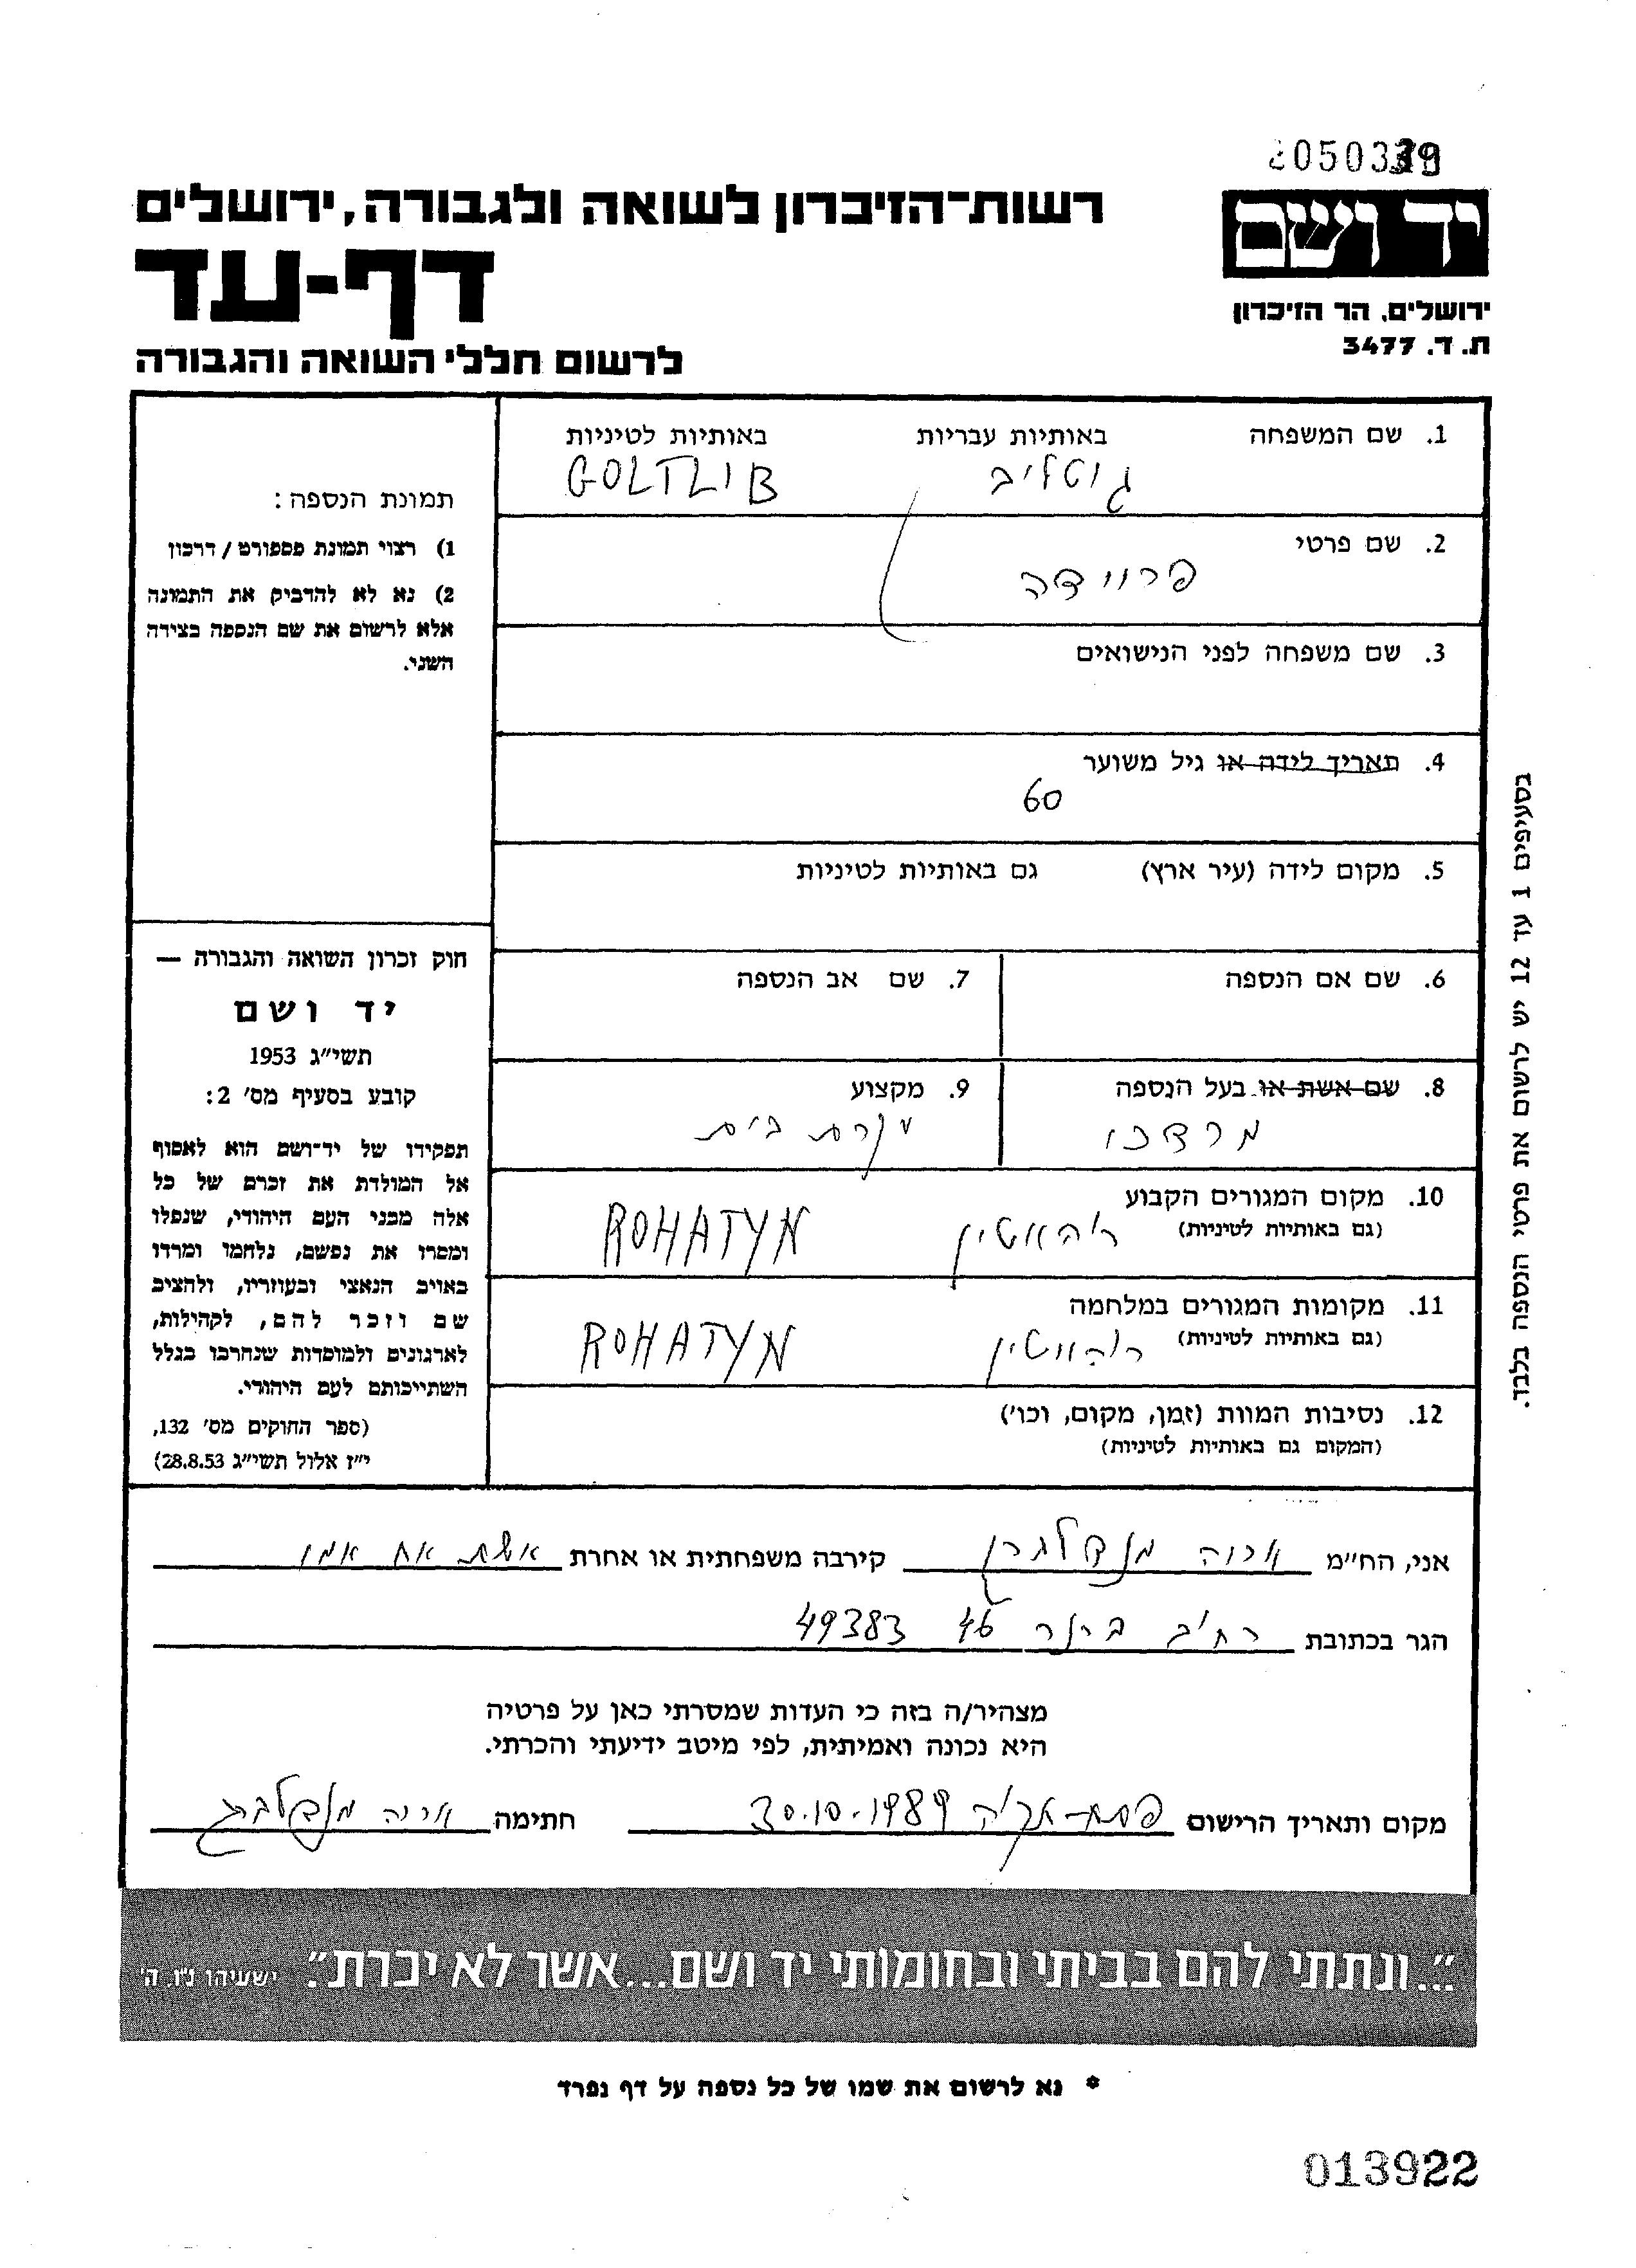 רשות־הזיכרון לשואה ולגבורה, ירושלים
דף-עד
לרשום חללי השואה והגבורה
יד ושם
ירושלים, הר הזיכרון
ת. ד. 3477
1. שם המשפחה באותיות עבריות באותיות לטיניות
גוטליב GOLTLIB
2. שם פרטי
3. שם משפחה לפני הנישואים
4. תאריך לידה או גיל משוער
60
5. מקום לידה (עיר ארץ) גם באותיות לטיניות
6. שם אם הנספה 7. שם אב הנספה
8. שם אשת או בעל הנספה 9. מקצוע
מרדכי עקרת בית
10. מקום המגורים הקבוע
(גם באותיות לטיניות) רוהאטין ROHATYN
11. מקומות המגורים במלחמה
(גם באותיות לטיניות) רוהאטין ROHATYN
12. נסיבות המוות (זמן, מקום, וכו')
(המקום גם באותיות לטיניות)
תמונת הנספה:
1) רצוי תמונת פספורט / דרכון
2) נא לא להדביק את התמונה
אלא לרשום את שם הנספה בצידה
השני.
חוק זכרון השואה והגבורה —
יד ושם
תשי"ג 1953
קובע בסעיף מס' 2:
תפקידו של יד־ושם הוא לאסוף
אל המולדת את זכרם של כל
אלה מבני העם היהודי, שנפלו
ומסרו את נפשם, נלחמו ומרדו
באויב הנאצי ובעוזריו, ולהציב
שם וזכר להם, לקהילות,
לארגונים ולמוסדות שנחרבו בגלל
השתייכותם לעם היהודי.
(ספר החוקים מס' 132,
י"ז אלול תשי"ג 28.8.53)
בסעיפים 1 עד 12 יש לרשום את פרטי הנספה בלבד.
אני, הח"מ קירבה משפחתית או אחרת אשת אח אמו
הגר בכתובת רח' 46 49383
מצהיר/ה בזה כי העדות שמסרתי כאן על פרטיה
היא נכונה ואמיתית, לפי מיטב ידיעתי והכרתי.
מקום ותאריך הרישום פתח-תקוה 30.10.1989 חתימה
"...ונתתי להם בביתי ובחומותי יד ושם...אשר לא יכרת". ישעיהו נ"ו. ה'
* נא לרשום את שמו של כל נספה על דף נפרד
013922